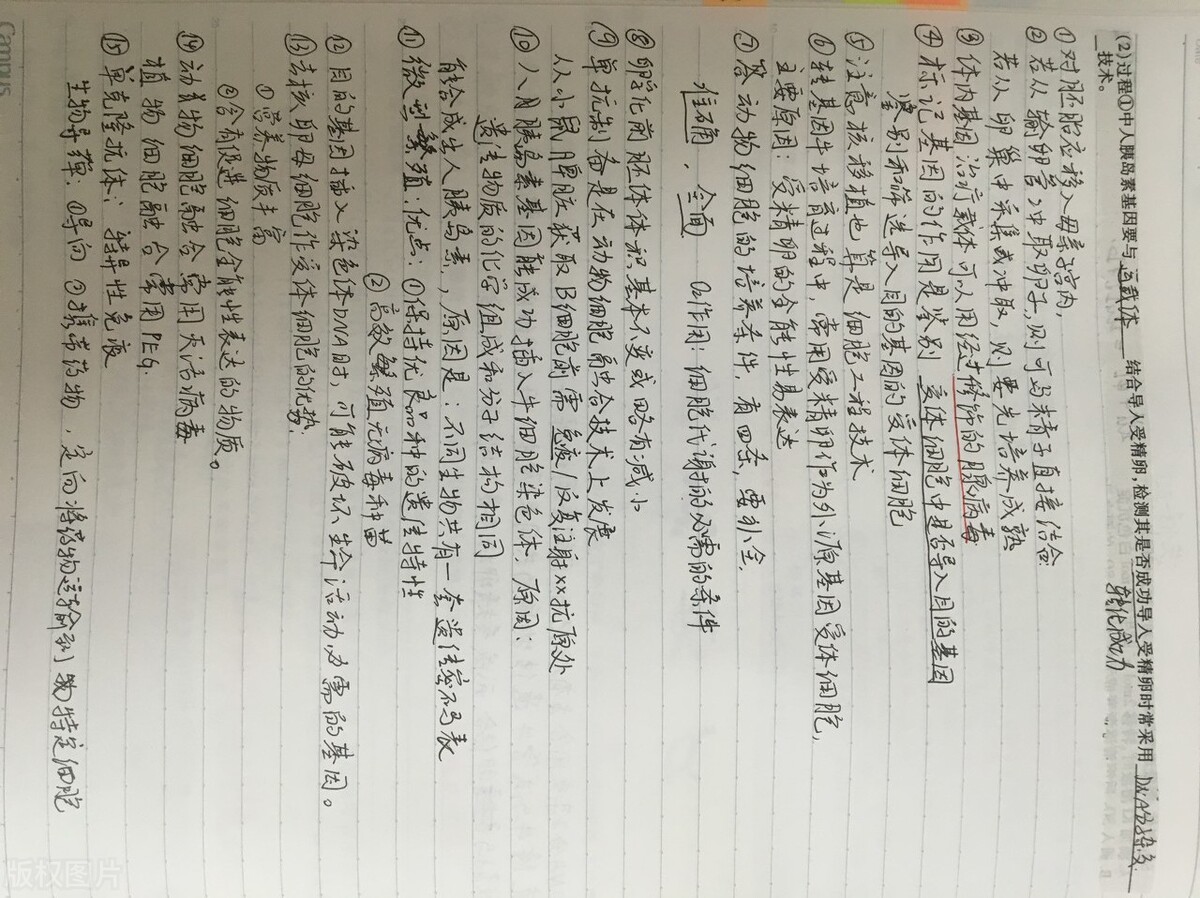 (2)过程①中人胰岛素基因要与 运载体 结合导入受精卵,检测其是否成功导入受精卵时常采用 DNA分子杂交
技术。
转化成功
① 对胚胎应移入母亲宫内,
② 若从输卵管冲取卵子,则可与精子直接结合
若从卵巢中采集或冲取,则要先培养成熟
③ 体内基因治疗载体可以用经过修饰的腺病毒
④ 标记基因的作用是鉴别 受体细胞中是否导入目的基因
鉴别和筛选导入目的基因的受体细胞
⑤ 注意核移植也算是细胞工程技术
⑥ 转基因牛培育过程中,常用受精卵作为外源基因受体细胞,
主要原因:受精卵的全能性易表达
⑦ 答动物细胞的培养条件,有四条,要补全.
准确,全面 作用:细胞代谢的必需的条件
⑧ 孵化前胚体体积基本不变或略有减小
⑨ 单抗制备是在动物细胞融合技术上发展
从小鼠脾脏获取B细胞前需免疫/反复注射xx抗原处
⑩ 人胰岛素基因能成功插入牛细胞染色体,原因:
遗传物质的化学组成和分子结构相同
能合成出人胰岛素,原因是:不同生物共有一套遗传密码表
⑪ 微型繁殖:优点:①保持优良品种的遗传特性
② 高效繁殖无病毒种苗
⑫ 目的基因插入染色体DNA时,可能破坏生命活动必需的基因。
⑬ 去核卵母细胞作受体细胞的优势.
①营养物质丰富
②含有促进细胞全能性表达的物质。
⑭ 动物细胞融合常用灭活病毒
植物细胞融合常用PEG.
⑮ 单克隆抗体:特异性免疫
生物导弹:①导向 ②携带药物,定向将药物运输到特定细胞
Campus
版权图片